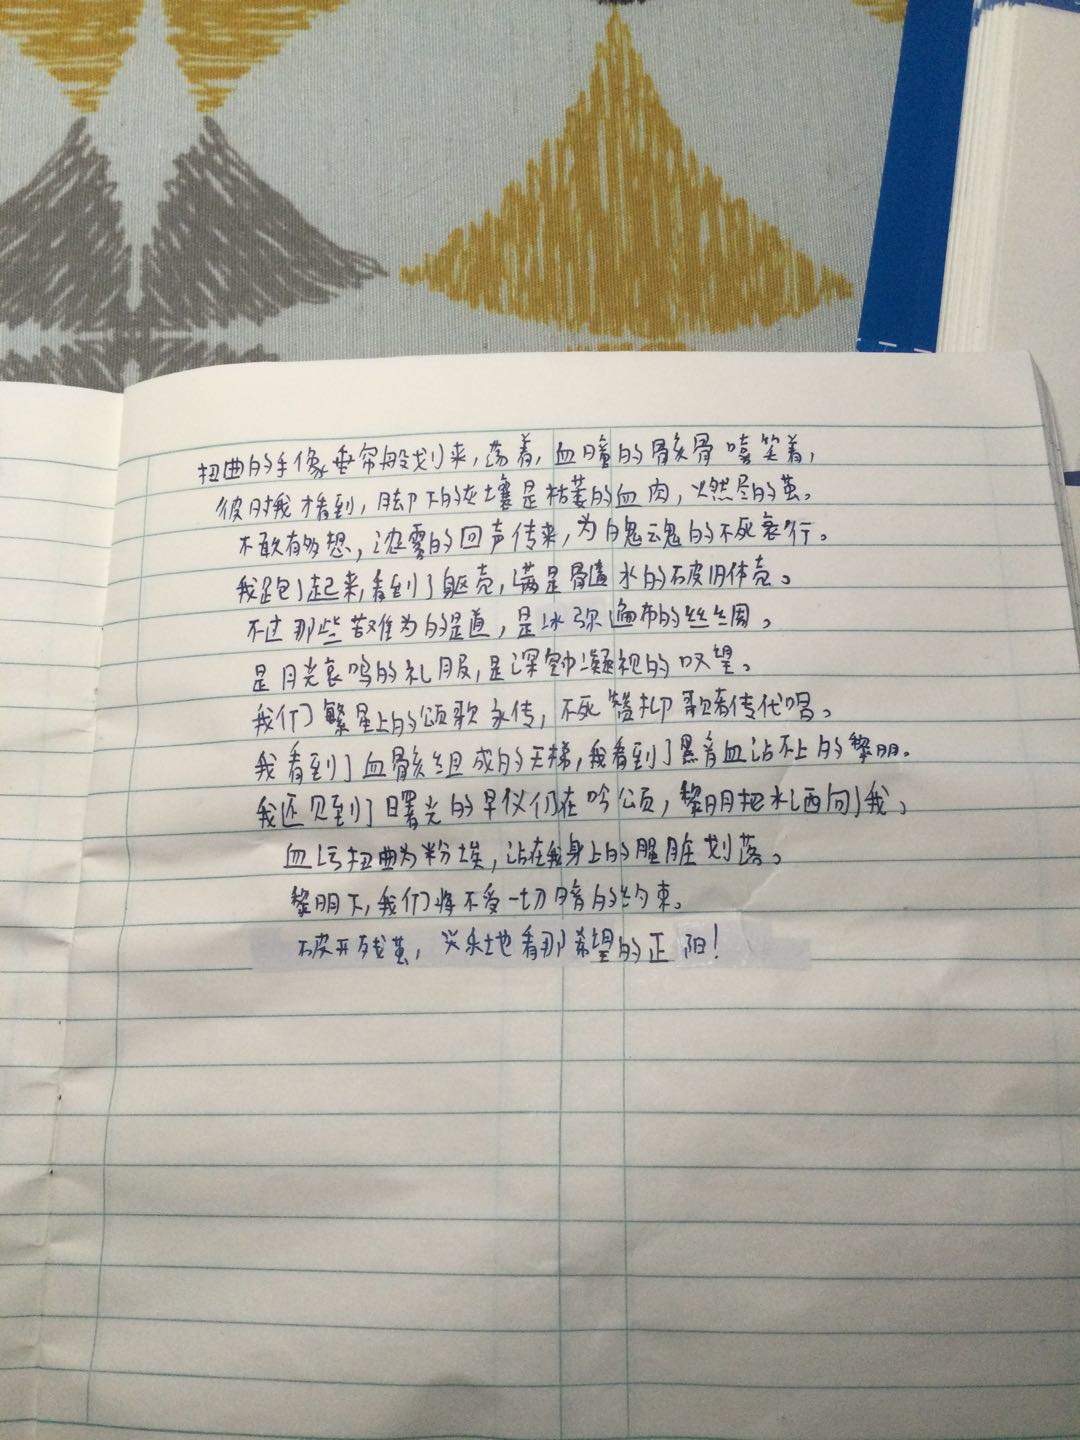 扭曲的手像垂帘般划来,荡着,血瞳的骸骨嘻笑着,
彼时我才看到,脚下的灰壤是枯萎的血肉,燃尽的茧。
不敢有多想,迷雾的回声传来,为白鬼魂的不死哀行。
我跑起来,看到了躯壳,满是骨渣水的破旧体壳。
不过那些苦难为的是道,是冰弥遍布的丝绸。
是月光哀鸣的礼服,是深空中凝视的叹望。
我们繁星上的颂歌永传,不死赞抑歌者传代唱。
我看到了血骸组成的天梯,我看到了黑音血沾不上的黎明。
我还见到了曙光的早仪仍在吟颂,黎明把水洒向我,
血污扭曲为粉埃,沾在我身上的腥脏划落。
黎明下,我们将不受一切暗的约束。
破开残茧,兴乐地看那希望的正阳!